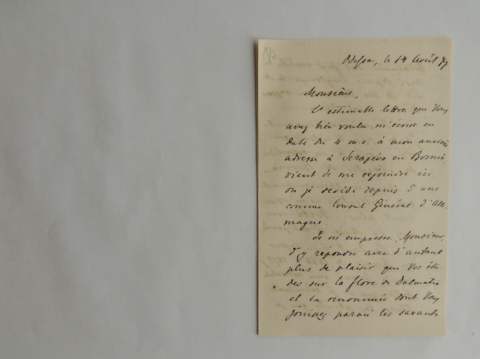 Odessa, le 14 Août 79
Monsieur,
L'estimable lettre que Vous
avez bien voulu m'écrire en
date du 4 m.c. à mon ancienne
adresse à Serajevo en Bosnie
vient de me rejoindre ici
où je réside depuis 5 ans
comme Consul Général d'Alle
magne.
Je m'empresse, Monsieur,
d'y repondre avec d'autant
plus de plaisir que Vos étu
des sur la flore de Dalmatie
et la renommée dont Vous
jouissez parmi les savants